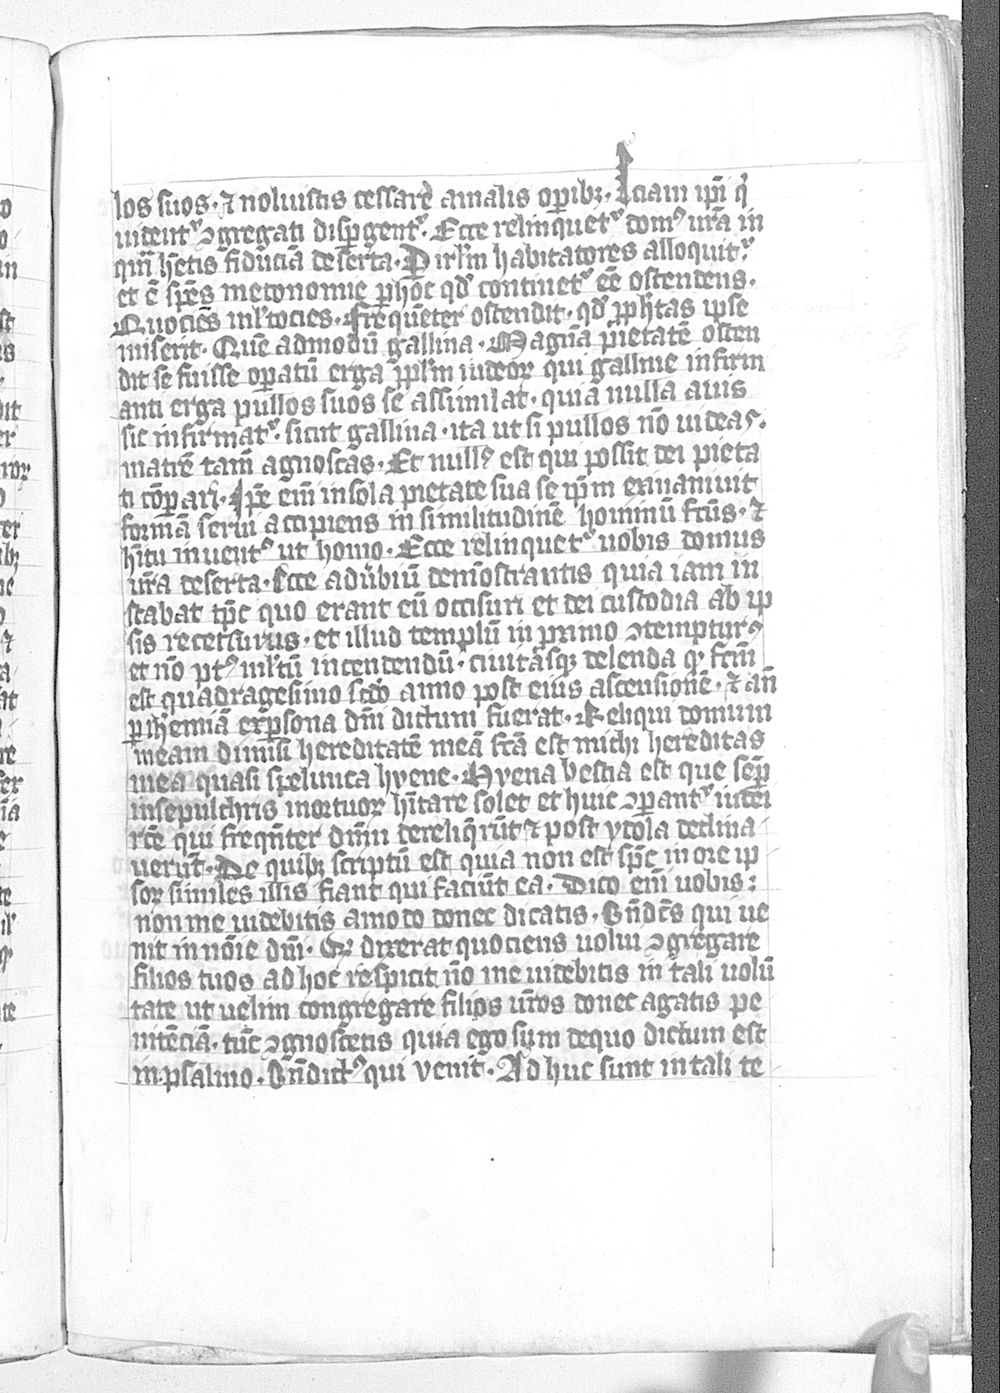 los suos · ⁊ noluistis cessare a malis oꝑibꝫ · Etiam ip̄i qͥ
uident᷑ ꝯgregati disꝑgent᷑ · Ecce relinquet᷑ domꝰ ur̄a in
qm̄ hētis fiduciā deserta · Ꝑ irl̄m habitatores alloquit᷑
et ē sp̄es metonomie ꝑ hoc qd̄ continet᷑ eē ostendens ·
Quociēs ml̄tocies · Freq̄ueter ostendit · qd̄ ꝓphetas ipse
miserit · Quē admodū gallina · Magnā pietatē osten
dit se fuisse oꝑatū erga pp̄lm iudeoꝝ qui galline infirm
anti erga pullos suos se assimilat · quia nulla auis
sic infirmat᷑ · sicut gallina · ita ut si pullos nō uideas ·
matrē tam̄ agnoscas · Et nullꝰ est qui possit dei pieta
ti cōꝑari · Ip̄e eni᷑ in sola pietate sua se ip̄m exinaniuit
formā serui accipiens in similitudinē hominū fc̄us · ⁊
hītu inuentꝰ ut homo · Ecce relinquet᷑ uobis domus
ur̄a deserta · Ecce aduerbiū demōstrantis quia iam in
stabat tp̄c quo erant eū occisuri et dei custodia ab ip
sis recessurus · et illud templū in primo ꝯtempturꝰ
et nō pꝰ ml̄tū incendendū · ciuitasqꝫ delenda qͥ fcm̄
est quadragesimo scd̄o anno post eius ascensionē · ⁊ an̄
ꝑ ihemiā ex ꝑsona dn̄i dictum fuerat · Reliqui domum
meam dimisi hereditatē meā fc̄a est michi hereditas
mea quasi spelunca hyene · Hyena bestia est que seꝑ
in sepulchris mortuoꝝ hītare solet et huic ꝯꝑant᷑ iudei
rc̄e qui freqn̄ter dm̄n dereliq̄rūt ⁊ post ydola declina
uerūt · De quibꝫ scriptū est quia non est sp̄c in ore ip
soꝝ similes illis fiant qui faciūt ea · Dico eni᷑ uobis :
non me uidebitis amodo donec dicatis · Bn̄dc̄s qui ue
nit in nōie dn̄i · Qꝫ dixerat quociens uolui ꝯgregare
filios tuos ad hoc respicit nō me uidebitis in tali uolū
tate ut uelim congregare filios ur̄os donec agatis pe
nitēciā · tūc ꝯgnoscetis quia ego sum de quo dictum est
in psalmo · Bn̄dictꝰ qui venit · Ad huc sunt in tali te